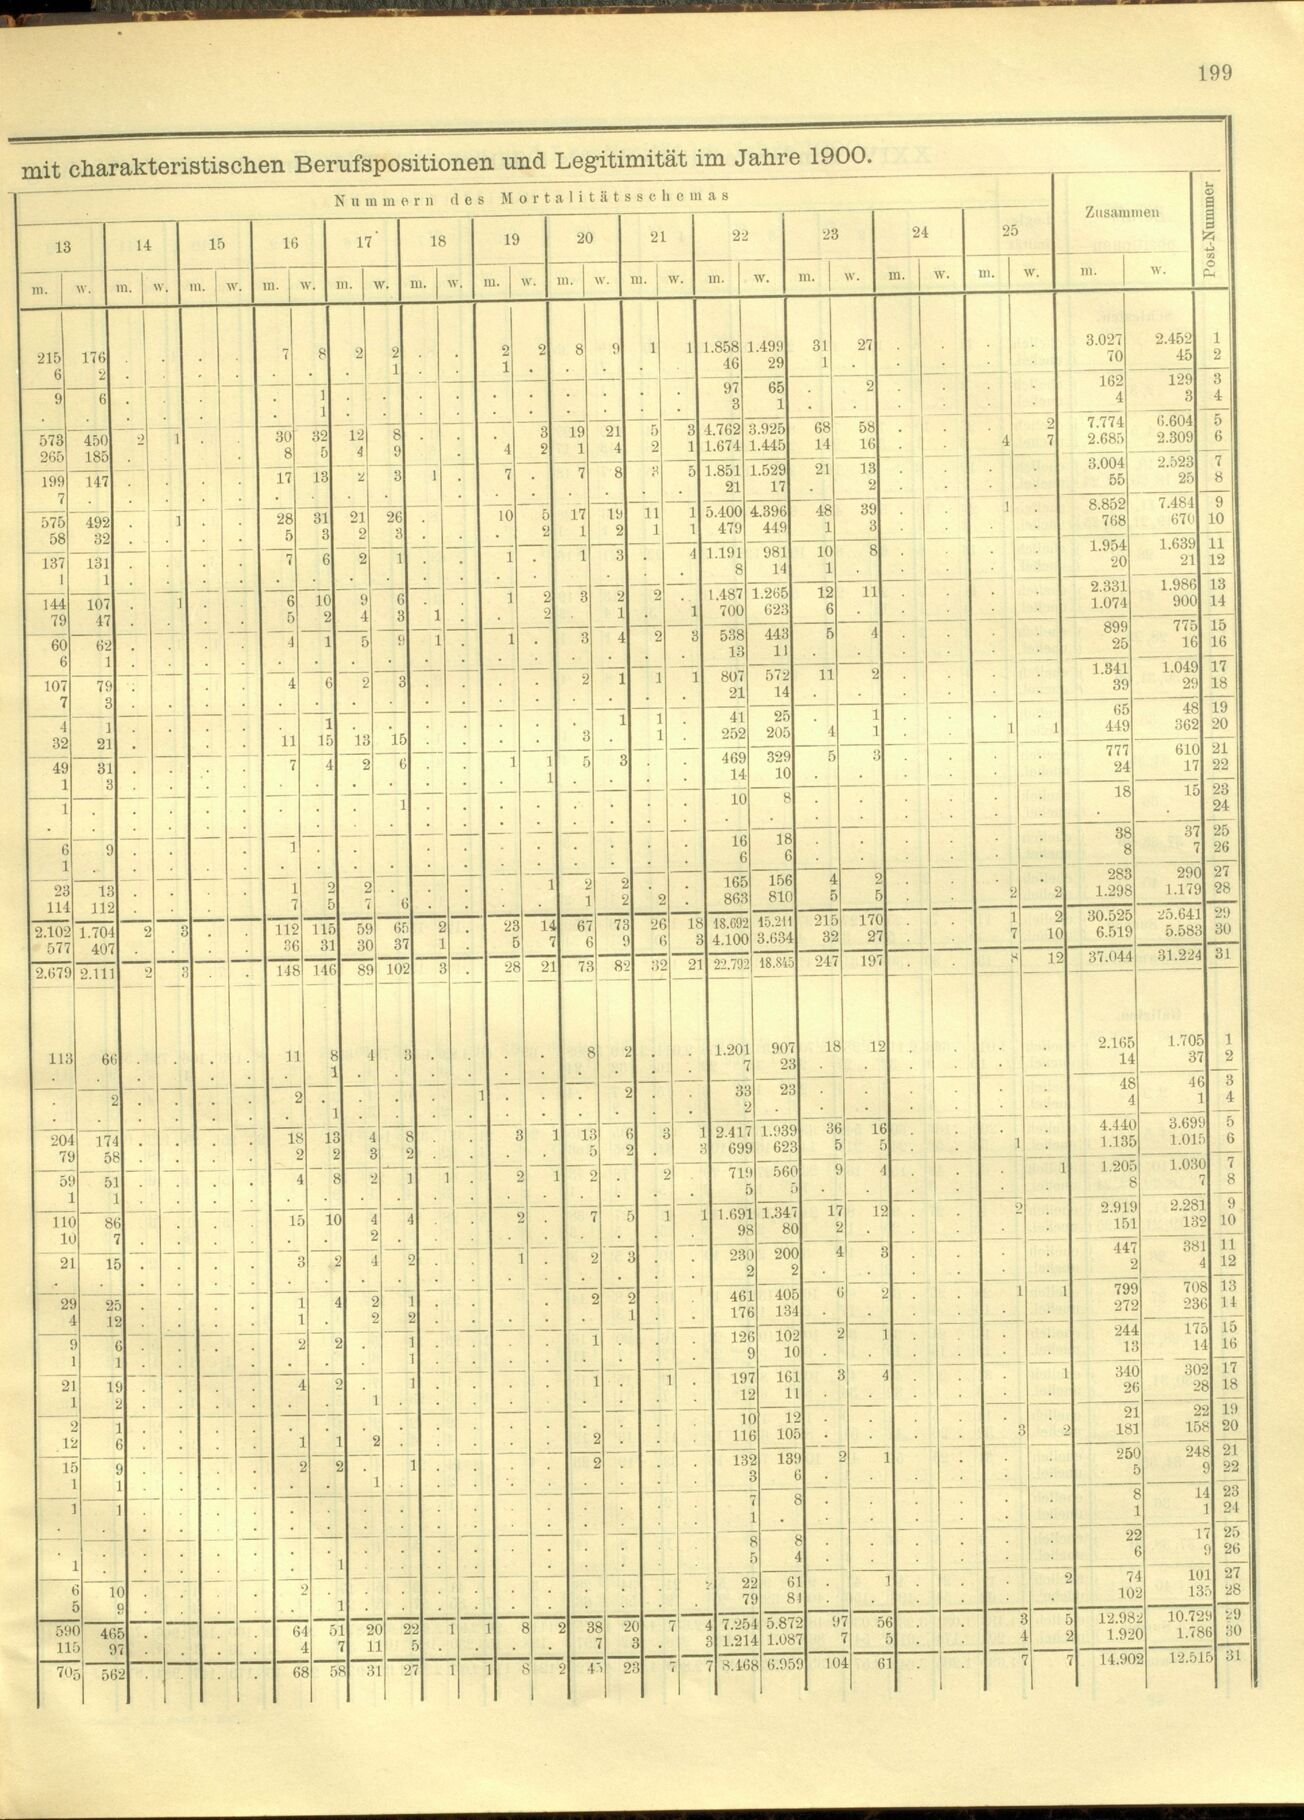 199
mit charakteristischen Berufspositionen und Legitimität im Jahre 1900.
Nummern des Mortalitätsschemas
Zusammen
Post-Nummer
13 14 15 16 17 18 19 20 21 22 23 24 25
m. w. m. w. m. w. m. w. m. w. m. w. m. w. m. w. m. w. m. w. m. w. m. w. m. w. m. w.
215 176 . . . . 7 8 2 2 . . 2 2 8 9 1 1 1.858 1.499 31 27 . . . . 3.027 2.452 1
6 2 . . . . . . . 1 . . 1 . . . . . 46 29 1 . . . . . 70 45 2
9 6 . . . . . 1 . . . . . . . . . . 97 65 . 2 . . . . 162 129 3
. . . . . . . 1 . . . . . . . . . . 3 1 . . . . . . 4 3 4
573 450 2 1 . . 30 32 12 8 . . . 3 19 21 5 3 4.762 3.925 68 58 . . . 2 7.774 6.604 5
265 185 . . . . 8 5 4 9 . . 4 2 1 4 2 1 1.674 1.445 14 16 . . 4 7 2.685 2.309 6
199 147 . . . . 17 13 2 3 1 . 7 . 7 8 3 5 1.851 1.529 21 13 . . . . 3.004 2.523 7
7 . . . . . . . . . . . . . . . . . 21 17 . 2 . . . . 55 25 8
575 492 . 1 . . 28 31 21 26 . . 10 5 17 19 11 1 5.400 4.396 48 39 . . 1 . 8.852 7.484 9
58 32 . . . . 5 3 2 3 . . . 2 1 2 1 1 479 449 1 3 . . . . 768 670 10
137 131 . . . . 7 6 2 1 . . 1 . 1 3 . 4 1.191 981 10 8 . . . . 1.954 1.639 11
1 1 . . . . . . . . . . . . . . . . 8 14 1 . . . . . 20 21 12
144 107 . 1 . . 6 10 9 6 . . 1 2 3 2 2 . 1.487 1.265 12 11 . . . . 2.331 1.986 13
79 47 . . . . 5 2 4 3 1 . . 2 . 1 . 1 700 623 6 . . . . . 1.074 900 14
60 62 . . . . 4 1 5 9 1 . 1 . 3 4 2 3 538 443 5 4 . . . . 899 775 15
6 1 . . . . . . . . . . . . . . . . 13 11 . . . . . . 25 16 16
107 79 . . . . 4 6 2 3 . . . . 2 1 1 1 807 572 11 2 . . . . 1.341 1.049 17
7 3 . . . . . . . . . . . . . . . . 21 14 . . . . . . 39 29 18
4 1 . . . . . 1 . . . . . . . 1 1 . 41 25 . 1 . . . . 65 48 19
32 21 . . . . 11 15 13 15 . . . . 3 . 1 . 252 205 4 1 . . 1 1 449 362 20
49 31 . . . . 7 4 2 6 . . 1 1 5 3 . . 469 329 5 3 . . . . 777 610 21
1 3 . . . . . . . . . . . 1 . . . . 14 10 . . . . . . 24 17 22
1 . . . . . . . . 1 . . . . . . . . 10 8 . . . . . . 18 15 23
. . . . . . . . . . . . . . . . . . . . . . . . . . . . 24
6 9 . . . . 1 . . . . . . . . . . . 16 18 . . . . . . 38 37 25
1 . . . . . . . . . . . . . . . . . 6 6 . . . . . . 8 7 26
23 13 . . . . 1 2 2 . . . . 1 2 2 . . 165 156 4 2 . . . . 283 290 27
114 112 . . . . 7 5 7 6 . . . . 1 2 2 . 863 810 5 5 . . 2 2 1.298 1.179 28
2.102 1.704 2 3 . . 112 115 59 65 2 . 23 14 67 73 26 18 18.692 15.211 215 170 . . 1 2 30.525 25.641 29
577 407 . . . . 36 31 30 37 1 . 5 7 6 9 6 3 4.100 3.634 32 27 . . 7 10 6.519 5.583 30
2.679 2.111 2 3 . . 148 146 89 102 3 . 28 21 73 82 32 21 22.792 18.845 247 197 . . 8 12 37.044 31.224 31
113 66 . . . . 11 8 4 3 . . . . 8 2 . . 1.201 907 18 12 . . . . 2.165 1.705 1
. . . . . . . 1 . . . . . . . . . . 7 23 . . . . . . 14 37 2
. 2 . . . . 2 . . . . 1 . . . 2 . . 33 23 . . . . . . 48 46 3
. . . . . . . 1 . . . . . . . . . . 2 . . . . . . . 4 1 4
204 174 . . . . 18 13 4 8 . . 3 1 13 6 3 1 2.417 1.939 36 16 . . . . 4.440 3.699 5
79 58 . . . . 2 2 3 2 . . . . 5 2 . 3 699 623 5 5 . . 1 . 1.135 1.015 6
59 51 . . . . 4 8 2 1 1 . 2 1 2 . 2 . 719 560 9 4 . . . 1 1.205 1.030 7
1 1 . . . . . . . . . . . . . . . . 5 5 . . . . . . 8 7 8
110 86 . . . . 15 10 4 4 . . 2 . 7 5 1 1 1.691 1.347 17 12 . . 2 . 2.919 2.281 9
10 7 . . . . . . 2 . . . . . . . . . 98 80 2 . . . . . 151 132 10
21 15 . . . . 3 2 4 2 . . 1 . 2 3 . . 230 200 4 3 . . . . 447 381 11
. . . . . . . . . . . . . . . . . . 2 2 . . . . . . 2 4 12
29 25 . . . . 1 4 2 1 . . . . 2 2 . . 461 405 6 2 . . 1 1 799 708 13
4 12 . . . . 1 . 2 2 . . . . . 1 . . 176 134 . . . . . . 272 236 14
9 6 . . . . 2 2 . 1 . . . . 1 . . . 126 102 2 1 . . . . 244 175 15
1 1 . . . . . . . 1 . . . . . . . . 9 10 . . . . . . 13 14 16
21 19 . . . . 4 2 . 1 . . . . 1 . 1 . 197 161 3 4 . . . 1 340 302 17
1 2 . . . . . . 1 . . . . . . . . . 12 11 . . . . . . 26 28 18
2 1 . . . . . . . . . . . . . . . . 10 12 . . . . . . 21 22 19
12 6 . . . . 1 1 2 . . . . . 2 . . . 116 105 . . . . 3 2 181 158 20
15 9 . . . . 2 2 . 1 . . . . 2 . . . 132 139 2 1 . . . . 250 248 21
1 1 . . . . . . 1 . . . . . . . . . 3 6 . . . . . . 5 9 22
1 1 . . . . . . . . . . . . . . . . 7 8 . . . . . . 8 14 23
. . . . . . . . . . . . . . . . . . 1 . . . . . . . 1 1 24
. . . . . . . . . . . . . . . . . . 8 8 . . . . . . 22 17 25
1 . . . . . . 1 . . . . . . . . . . 5 4 . . . . . . 6 9 26
6 10 . . . . 2 . . . . . . . . . . 22 61 . 1 . . . 2 74 101 27
5 9 . . . . . 1 . . . . . . . . . . 79 81 . . . . . . 102 135 28
590 465 . . . . 64 51 20 22 1 1 8 2 38 20 7 4 7.254 5.872 97 56 . . 3 5 12.982 10.729 29
115 97 . . . . 4 7 11 5 . . . . 7 3 . 3 1.214 1.087 7 5 . . 4 2 1.920 1.786 30
705 562 . . . . 68 58 31 27 1 1 8 2 45 23 7 7 8.468 6.959 104 61 . . 7 7 14.902 12.515 31